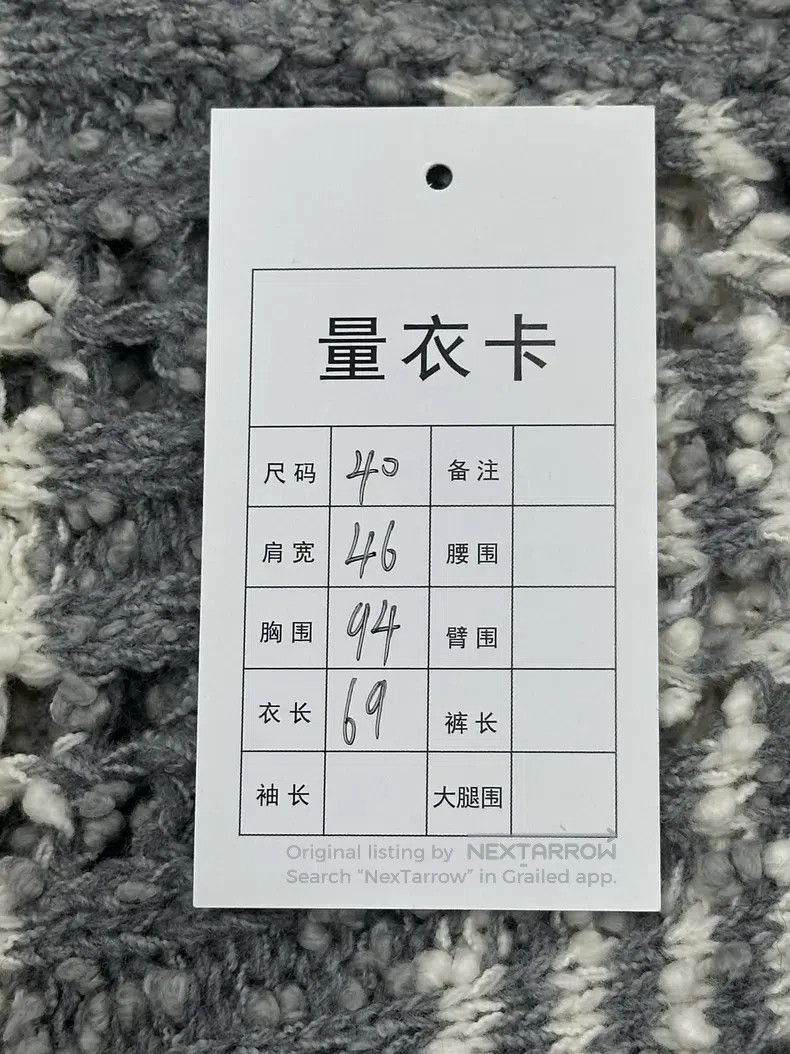 量衣卡
尺码 40 备注
肩宽 46 腰围
胸围 94 臂围
衣长 69 裤长
袖长 大腿围
Original listing by NEXTARROW
Search “NexTarrow” in Grailed app.